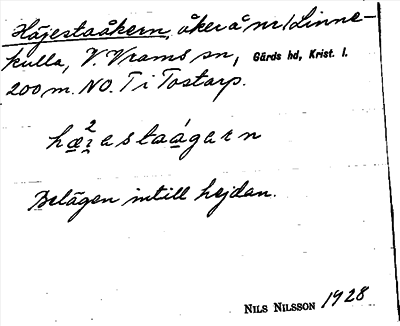 Höjestaåkern, åker å nr 1 Linne-
kulla, V. Vrams sn, Gärds hd, Krist. l.
200 m. NO. T i Tostarp.
hæ²ꝛastaágarn
Belägen intill hejdan.
NILS NILSSON 1928